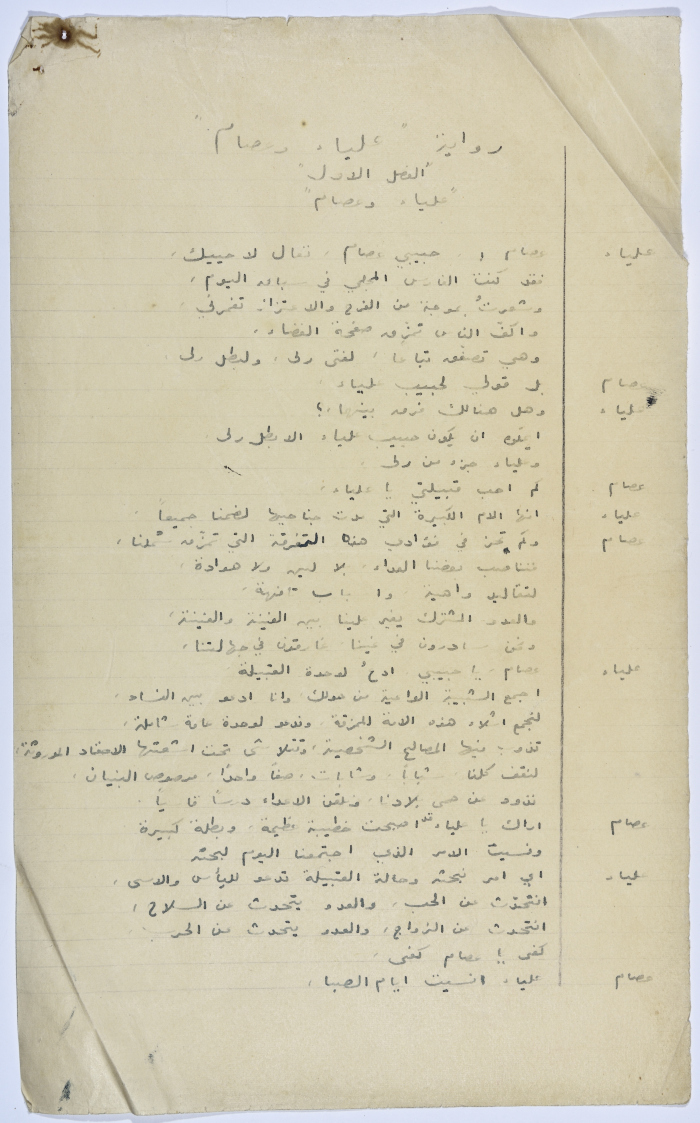 رواية "علياء وعصام"
"الفصل الاول"
"علياء وعصام"
علياء عصام ! . حبيبي عصام . تعال لاحييك .
فقد كنت الفارس المجلي في سباق اليوم ،
وشعرتُ بموجة من الفرح والاعتزاز تغمرني .
واكف الناس تمزق صفحة الفضاء .
وهي تصفق تباعا ، لفتى ولبطل
عصام بل قولي لحبيب علياء
علياء وهل هنالك فرق بينهما ؟
ان يكون حبيب علياء الا بطل
وعلياء جزء من
عصام كم احب قبيلتي يا علياء .
علياء انها الام الكبيرة التي مدت جناحيها لضمنا جميعاً .
عصام وكم تحز في فؤادي هذه التفرقة التي تمزق شملنا ،
فنناصب بعضنا العداء . بلا لين ولا هوادة ،
لتقاليد واهية . واسباب تافهة .
والعدو المشترك يغير علينا بين الفينة والفينة ،
ونحن سادرون في غينا . غارقون في جهالتنا ،
علياء عصام . يا حبيبي ادعُ لوحدة القبيلة
اجمع الشبيبة الواعية من حولك . وانا ادعو بين النساء ،
لنجمع اشلاء هذه الامة الممزقة ، وندعو لوحدة عامة شاملة ،
تذوب فيها المصالح الشخصية ، وتتلاشى تحت اشعتها الاحقاد الموروثة ،
لنقف كلنا . شباباً . وشابات . صفاً واحداً . مرصوص البنيان .
نذود عن حمى بلادنا . ونلقن الاعداء درساً قاسياً .
عصام اراك يا علياء قد اصبحت خطيبة عظيمة . وبطلة كبيرة
ونسيت الامر الذي اجتمعنا اليوم لبحثه
علياء اي امر نبحثه وحالة القبيلة تدعو لليأس والاسى ،
انتحدث عن الحب . والعدو يتحدث عن السلاح ؛
انتحدث عن الزواج ، والعدو يتحدث عن الحرب .
كفى يا عصام كفى .
عصام علياء انسيت ايام الصبا ،